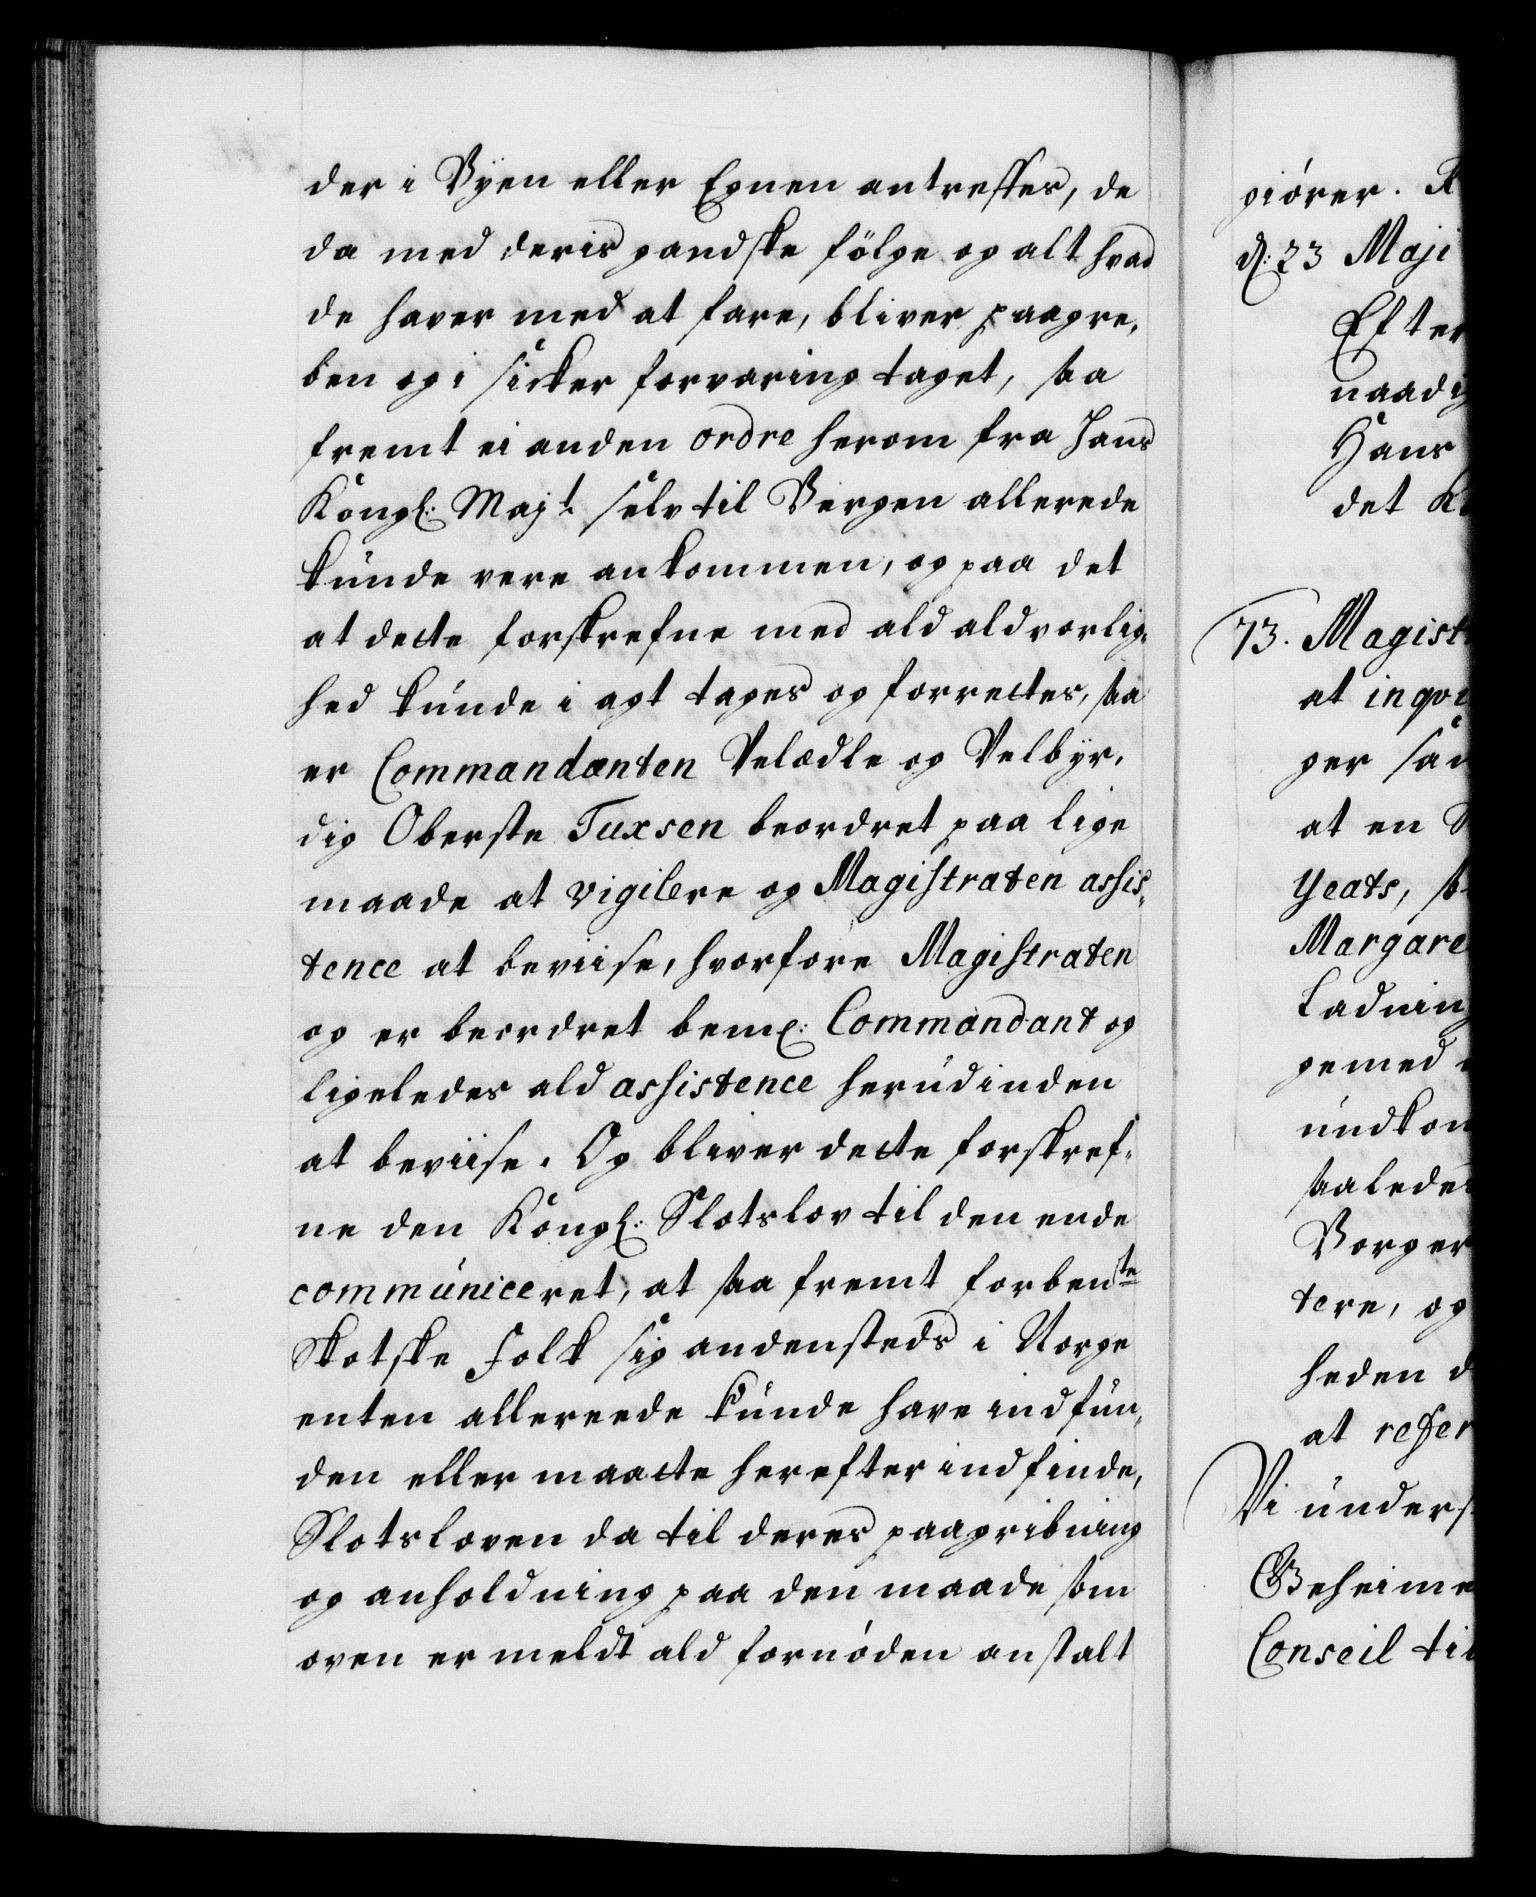 der i Byen eller Egnen antreffes, de
da med deris gandske fölge og alt hvad
de haver med at fare, bliver paagre,
ben og i sicker forvaring taget, saa
fremt ei anden ordre herom fra Hans
Kongl: Majt. selv til Bergen allerede
kunde vere ankommen, og paa det
at dette forskrefne med ald aldvorlig,
hed kunde i agt tages og forrettes, saa
er Commandanten Velædle og Velbyr,
dig Oberste Tuxsen beordret paa lige
maade at vigilere og Magistraten assis,
tence at beviise, hvorfore Magistraten
og er beordret bemt: Commandant og
ligeledes ald assistence herudinden
at beviise. Og bliver dette forskref,
ne den Kongl: Slotslov til den ende
communiceret, at saa fremt forbente
Skotske Folk sig andensteds i Norge
enten allereede kunde have indfun,
den eller maatte herefter indfinde,
Slotsloven da til deres paagribning
og anholdning paa den maade som
oven er meldt ald fornöden anstalt
giörer. R
d: 23 Maji
Efter
naadig
Hans
det K
73. Magist
at inqvi
ger
at en S
Yeats,
Margare
Ladning
gemed
undkom
saaledes
Borger
tere, og
heden d
at refer
Vi unders
Geheime
Conseil til